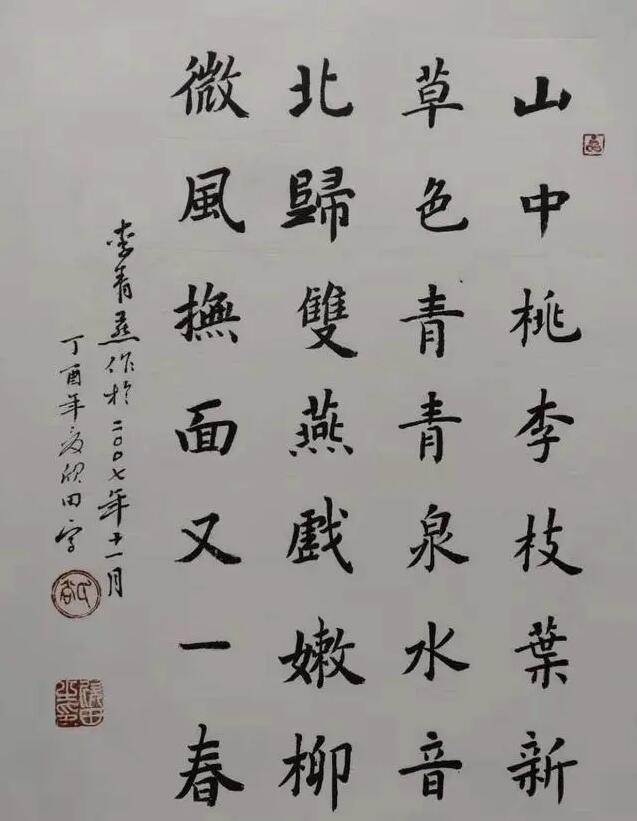 山中桃李枝葉新
草色青青泉水音
北歸雙燕戲嫩柳
微風撫面又一春
李青燕作於二〇〇七年十一月
丁酉年夏欣田字